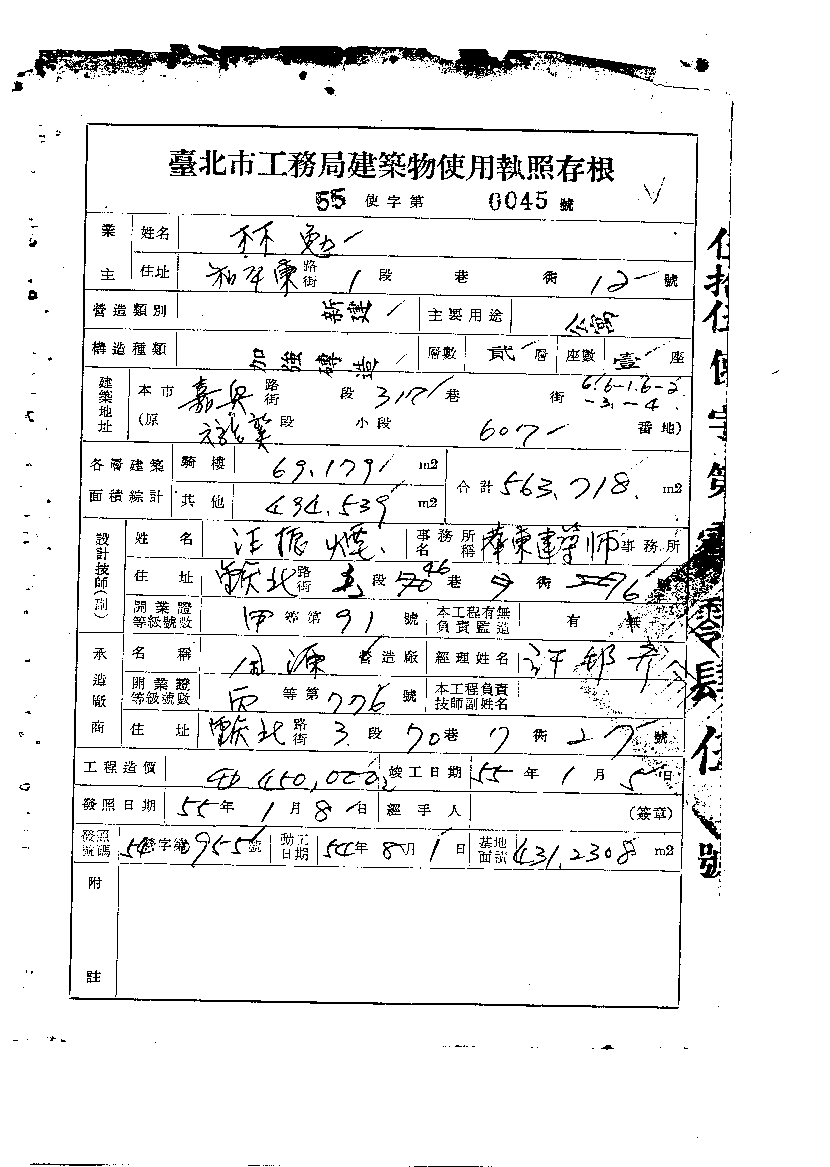 臺北市工務局建築物使用執照存根
55 使字第 0045 號
業主 姓名 林勉
住址 和平東路街 1 段 巷 街 12 號
營造類別 新建 主要用途 公寓
構造種類 加強磚造 層數 貳層 座數 壹座
建築地址 本市 嘉興路街 段 317 巷 街 6.6-1.6-2 -3.-4
(原 段 小段 607 番地)
各層建築面積綜計 騎樓 69.179 m2 合計 563.718 m2
其他 494.539 m2
設計技師(副) 姓名 汪振 事務所名稱 華東建築師事務所
住址 重慶北路街 段 46 巷 街 號
開業證等級號數 甲等第 91 號 本工程有無負責監造 有 無
承造廠商 名稱 周源營造廠 經理姓名 許
開業證等級號數 丙等第 776 號 本工程負責技師副姓名
住址 重慶北路街 3 段 70 巷 7 街 27 號
工程造價 450,000 竣工日期 55 年 1 月 5 日
發照日期 55 年 1 月 8 日 經手人 (簽章)
發照號碼 54 營字第 0955 號 動工日期 54 年 8 月 1 日 基地面積 431.2308 m2
附註
伍拾伍使字第零零肆伍號